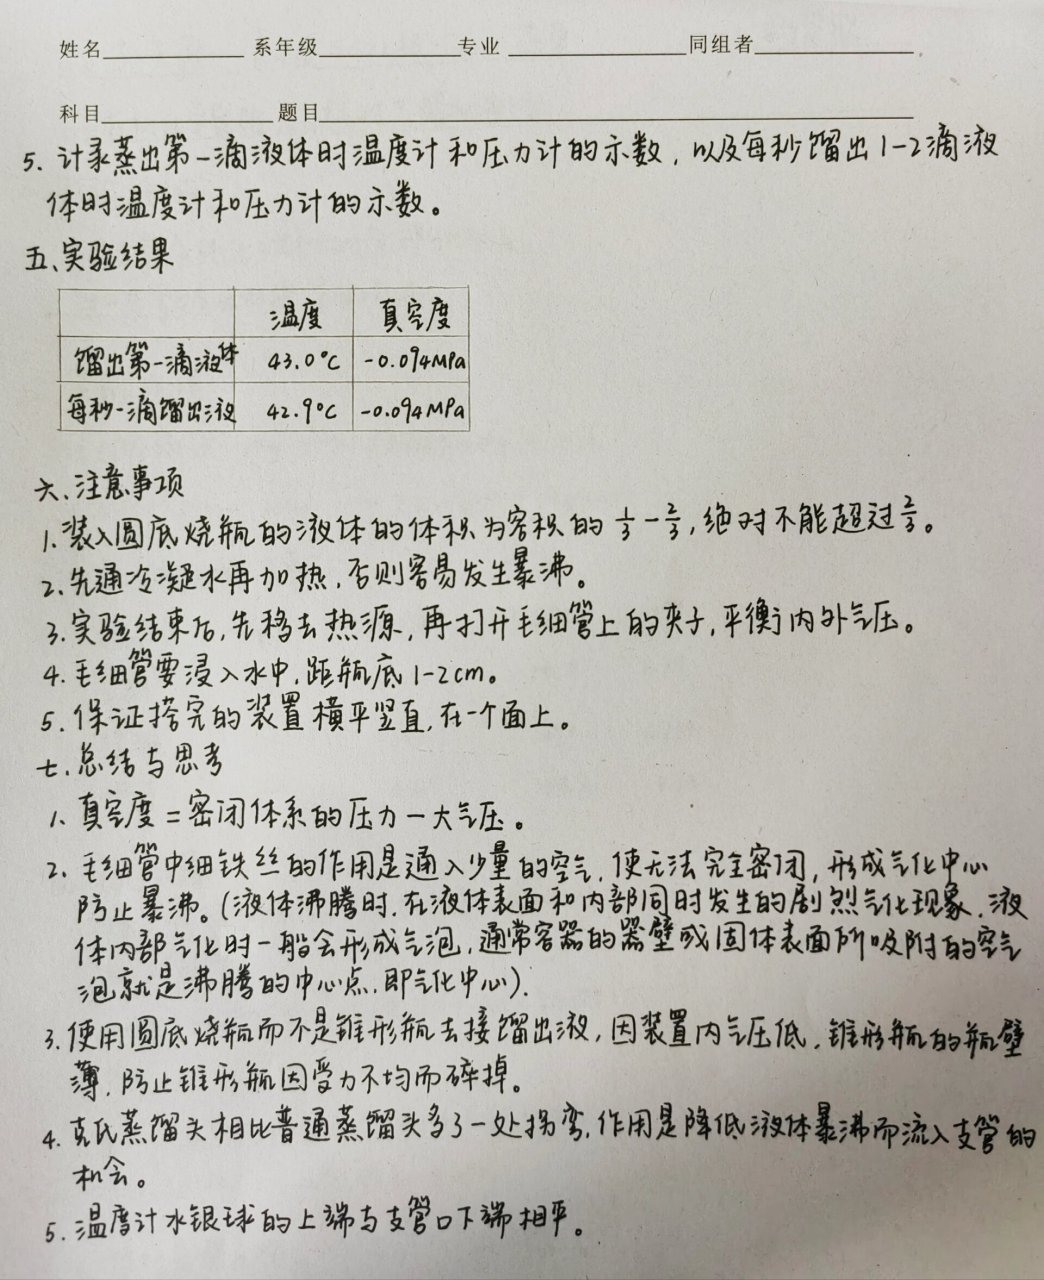 姓名 系年级 专业 同组者
科目 题目
5. 计录蒸出第一滴液体时温度计和压力计的示数，以及每秒馏出1-2滴液
体时温度计和压力计的示数。
五、实验结果
温度 真空度
馏出第一滴液体 43.0°C -0.094MPa
每秒一滴馏出液 42.9°C -0.094MPa
六、注意事项
1. 装入圆底烧瓶的液体的体积为容积的 1/3 - 2/3，绝对不能超过 2/3。
2. 先通冷凝水再加热，否则容易发生暴沸。
3. 实验结束后，先移去热源，再打开毛细管上的夹子，平衡内外气压。
4. 毛细管要浸入水中，距瓶底1-2cm。
5. 保证搭完的装置横平竖直，在一个面上。
七、总结与思考
1、真空度=密闭体系的压力-大气压。
2、毛细管中细铁丝的作用是通入少量的空气，使无法完全密闭，形成气化中心
防止暴沸。（液体沸腾时，在液体表面和内部同时发生的剧烈气化现象，液
体内部气化时一般会形成气泡，通常容器的器壁或固体表面所吸附的空气
泡就是沸腾的中心点，即气化中心）.
3. 使用圆底烧瓶而不是锥形瓶去接馏出液，因装置内气压低，锥形瓶的瓶壁
薄，防止锥形瓶因受力不均而碎掉。
4. 克氏蒸馏头相比普通蒸馏头多了一处拐弯，作用是降低液体暴沸而流入支管的
机会。
5. 温度计水银球的上端与支管口下端相平。